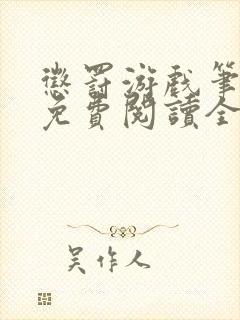 懲罰游戲筆
免費閱讀全
吴作人